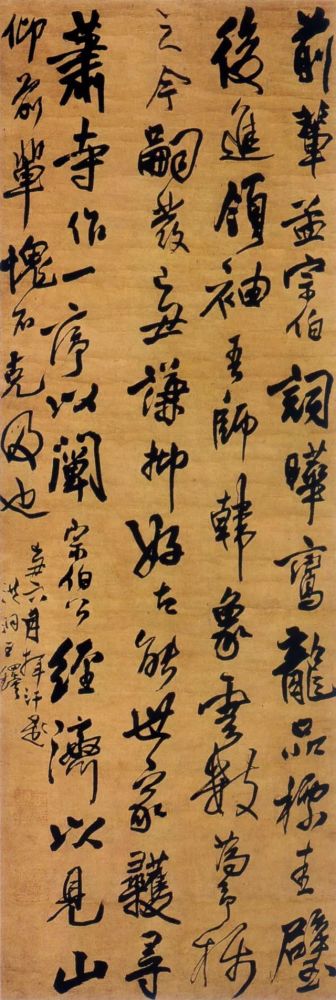 前輩孟宗伯詞曄鸞龍品標圭璧
後進領袖吾師韓象雲數為予稱
之今嗣發丑謙抑好古能世家尋
蕭寺作一序以闡宗伯公經濟以見山
仰前輩愧不克也
六月拜汗題
洪洞王鐸